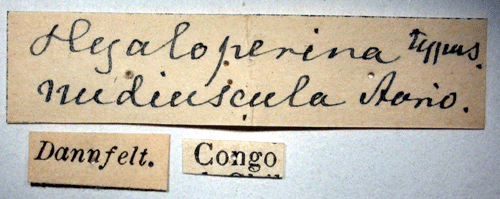 Hyaloperina typus.
nudiuscula Auriv.
Dannfelt.
Congo